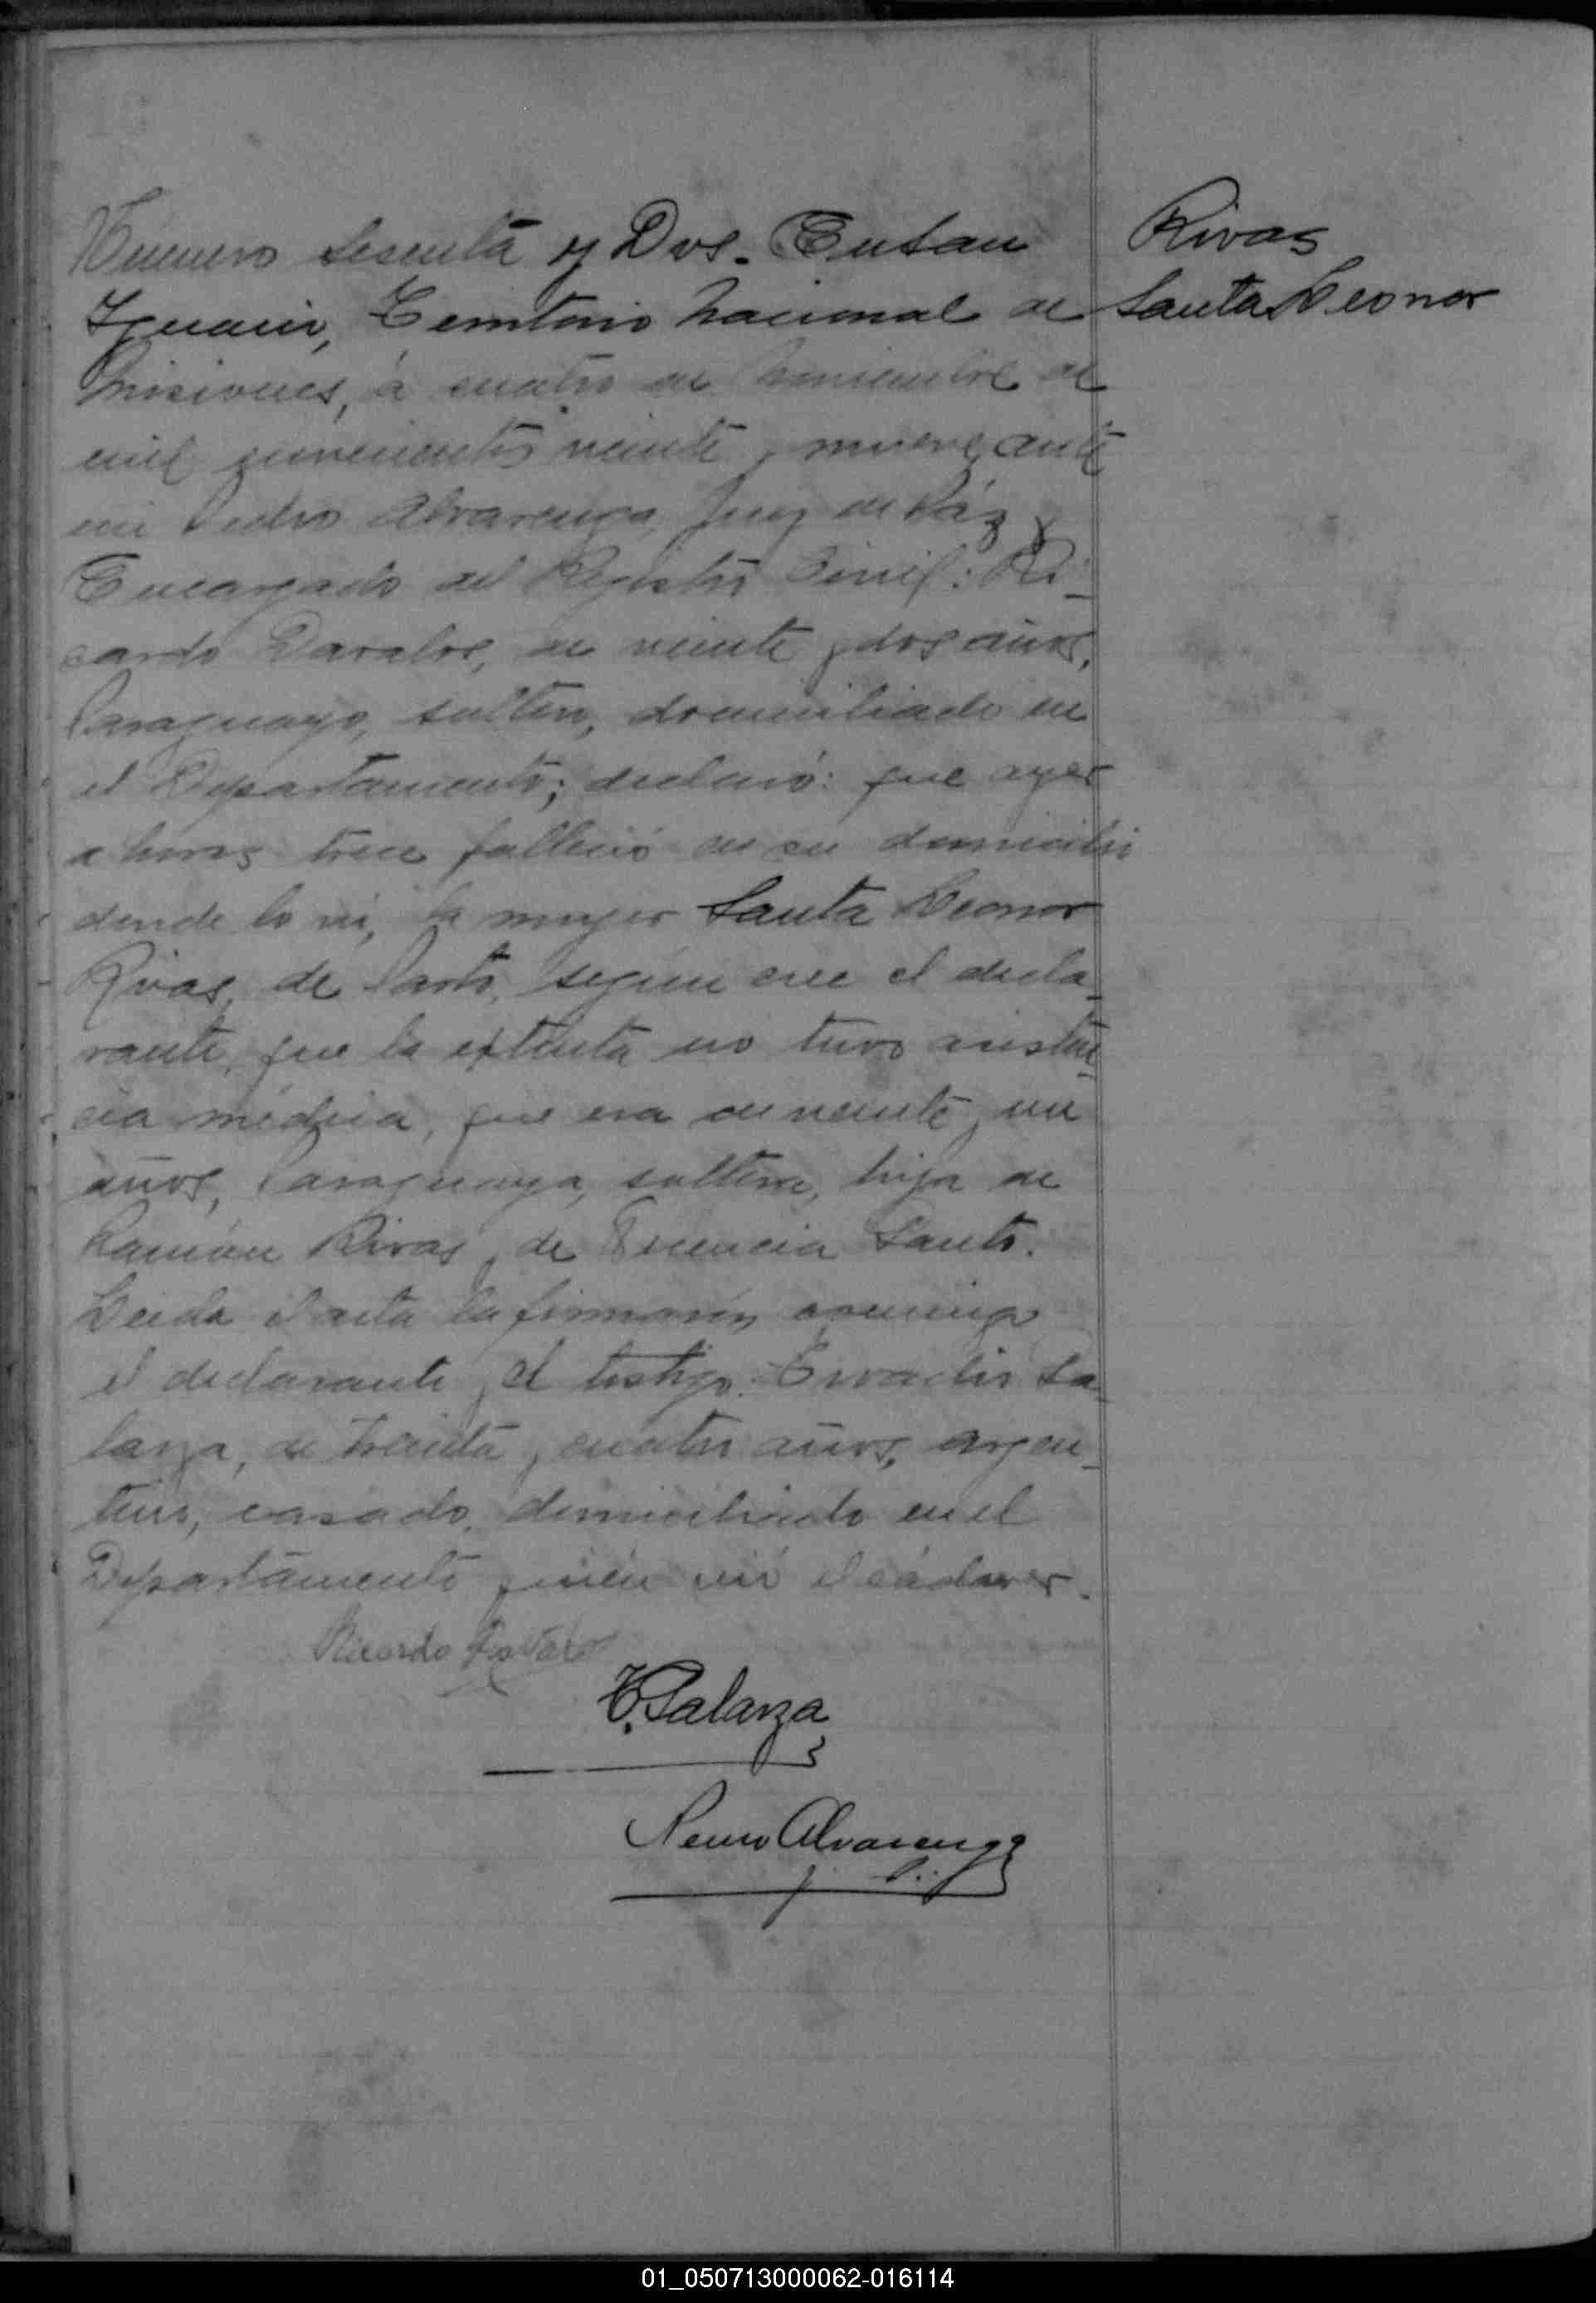 Número Sesenta y Dos. En San
Ignacio, Territorio Nacional de
Misiones, á cuatro de Noviembre de
mil novecientos veinte y nueve, ante
mi Pedro Alvarenga, Juez de Páz y
Encargado del Registro Civil: Ri-
cardo Davalos, de veinte y dos años,
Paraguayo, soltero, domiciliado en
el Departamento; declaró: que ayer
a horas trece falleció en su domicilio
donde lo vi, la mujer Santa Leonor
Rivas, de Parto, según cree el decla-
rante, que la extinta no tuvo asisten-
cia médica, que era de veinte y un
años, Paraguaya, soltera, hija de
Ramón Rivas y de Santo.
Leida el acta la firmarón conmigo
el declarante y el testigo: Sa-
lanza, de treinta y cuatro años, argen-
tino, casado, domiciliado en el
Departamento quién vió el cádaver.
Ricardo
Salanza
Pedro Alvarenga
Rivas
Santa Leonor
01_050713000062-016114